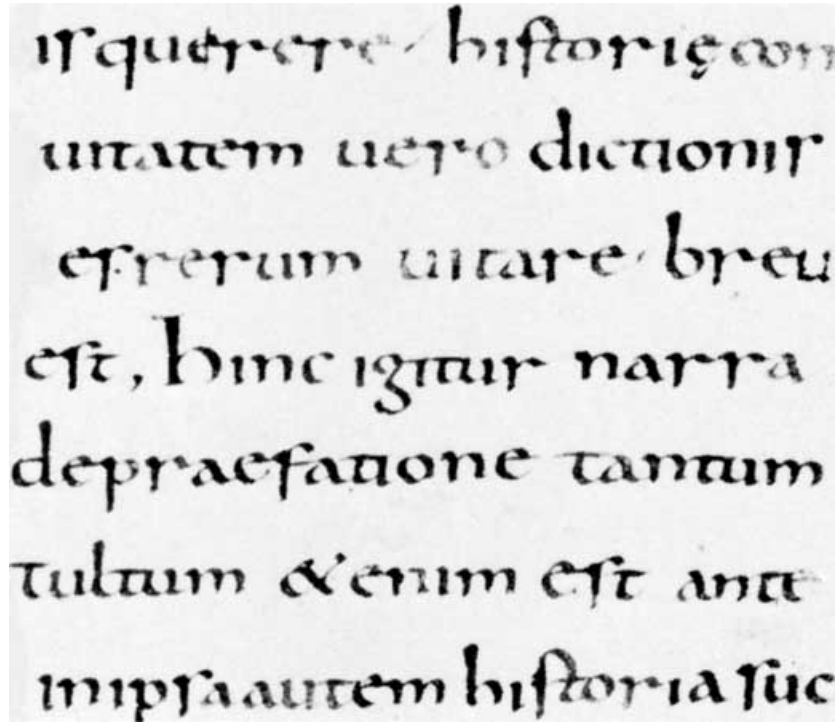 is querere · historię con
uitatem uero dictionis
es rerum uitare · breu
est, hinc igitur narra
de praefatione tantum
tultum & enim est ante
in ipsa autem historia suc